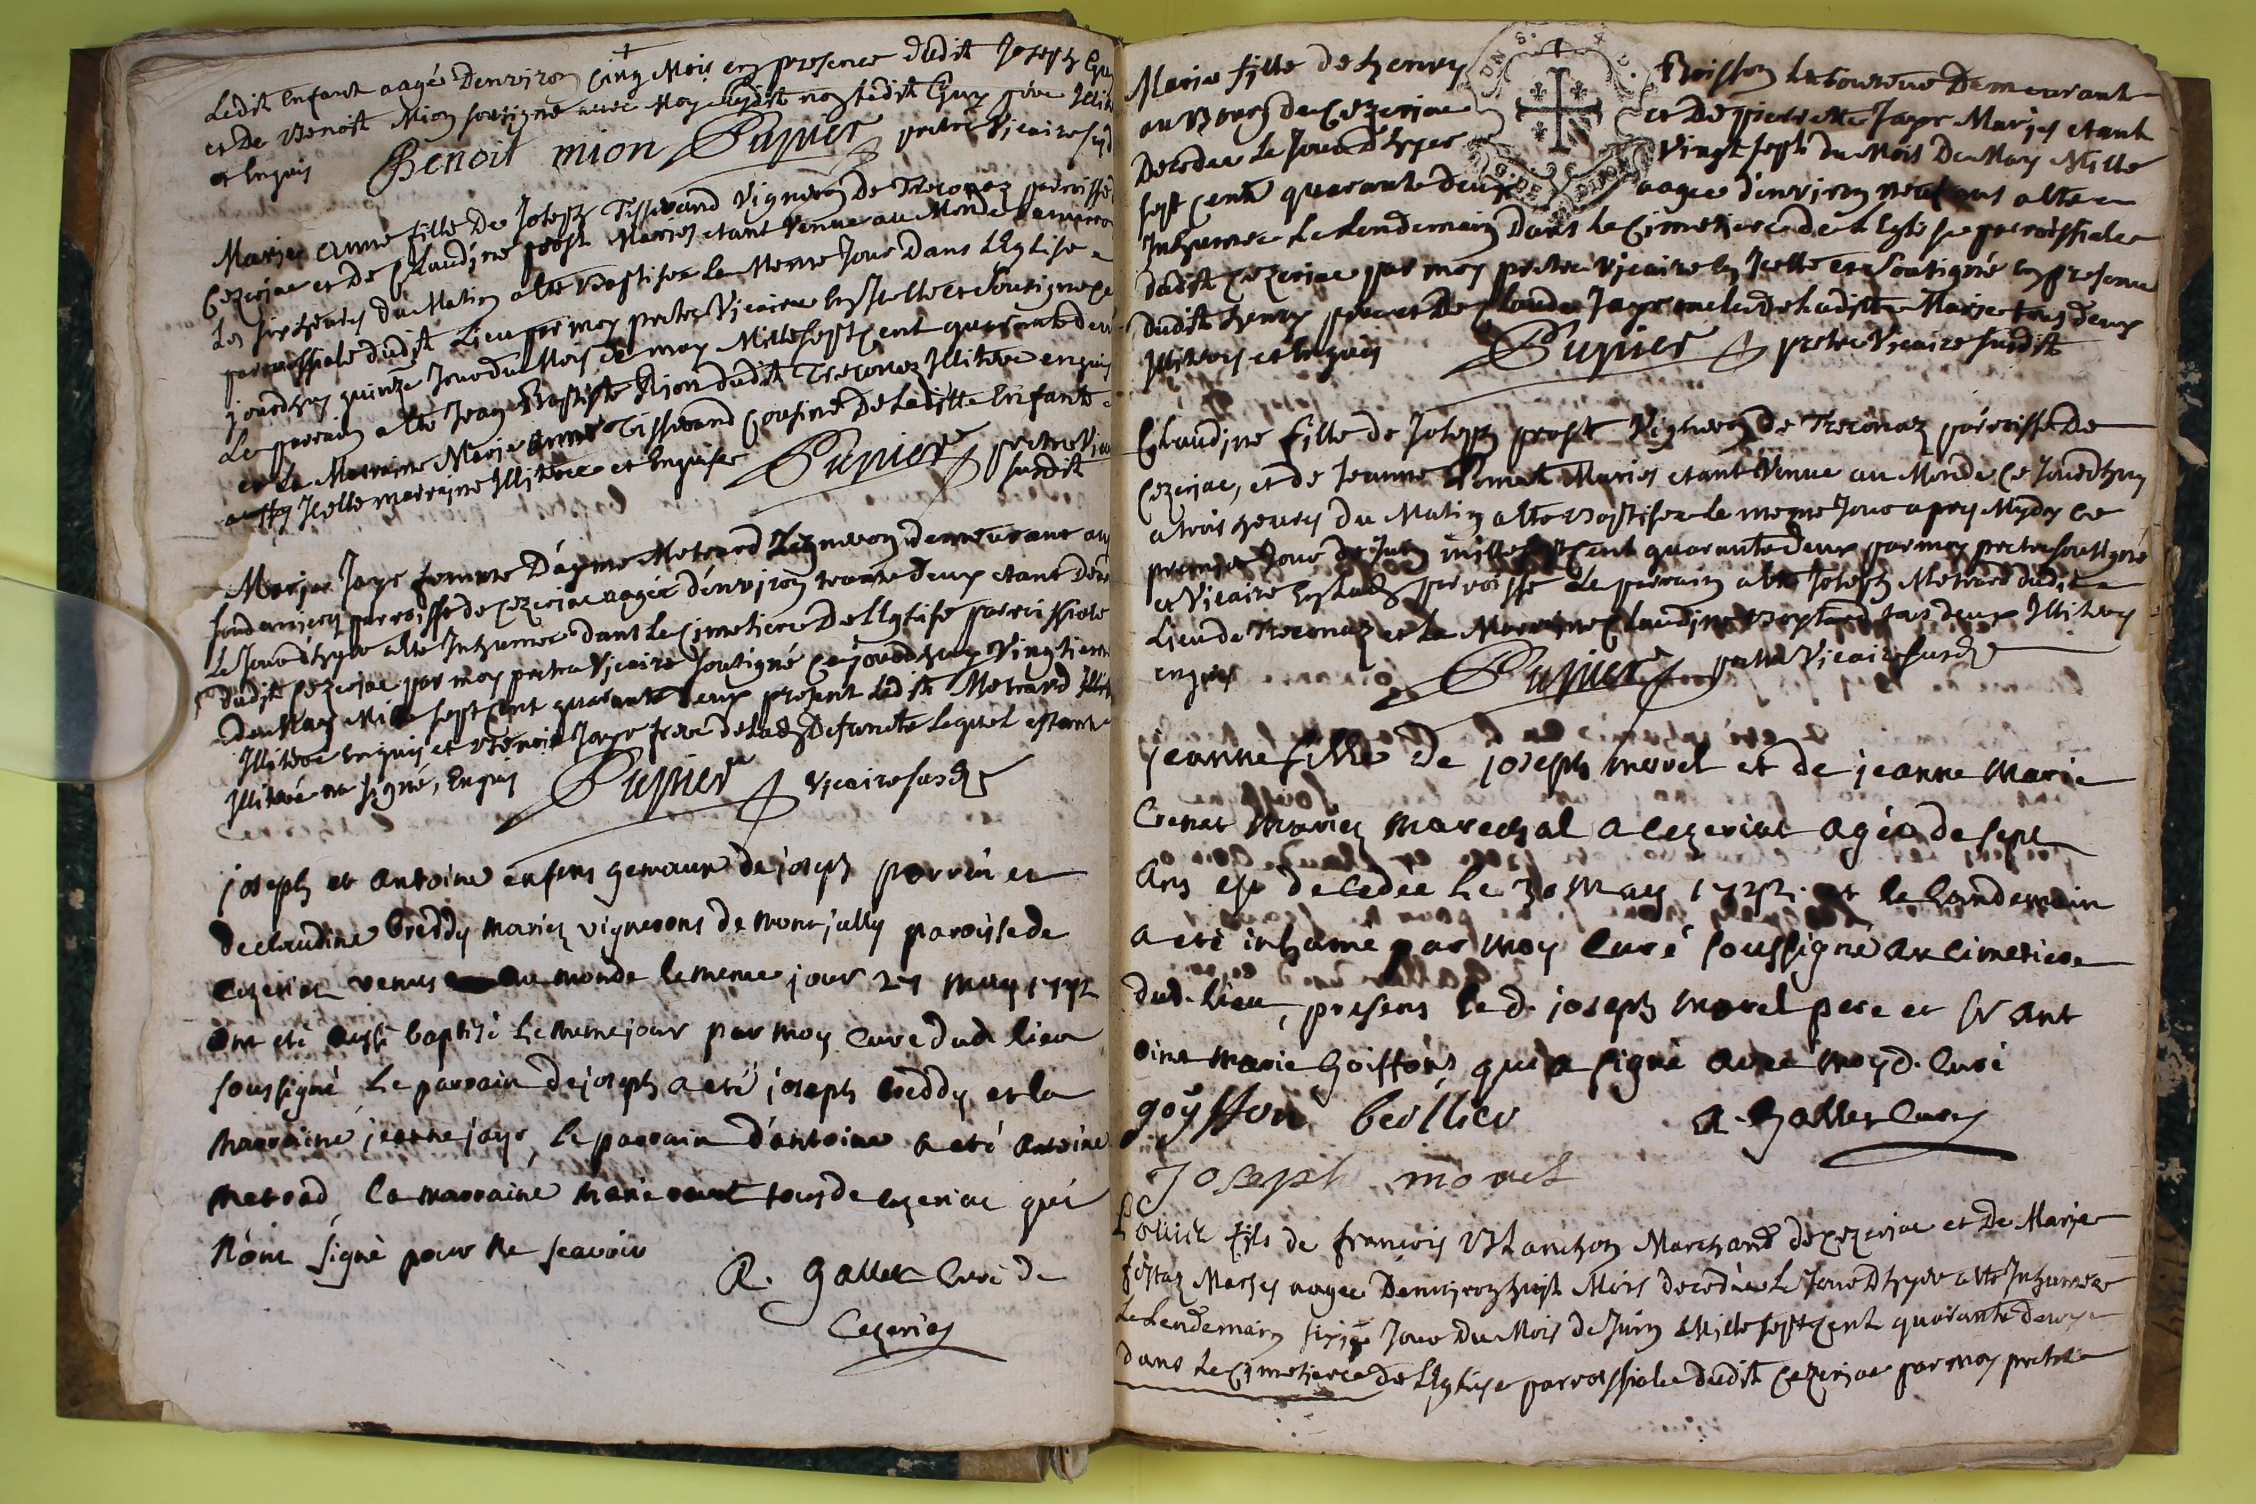 Ledit Enfant aagée Denviron Cinq Mois en presence dudit Joseph
et De Benoit Mion soussigné avec Moy ledit père
et Enquis Benoit mion Pupier pretre Vicaire susd
Marie Anne fille De Joseph Tisserand Vigneron De Treconaz parroisse
Cezeriac et De Claudine prost Mariés etant Venue au Monde
Les six heures du Matin a Eté Baptisée Le Meme Jour Dans L'Eglise
parroissiale dudit Lieu par moy pretre Vicaire En Icelle et soussigné ce
jourdhuy quinze Jour du Mois de may Mille Sept Cent quarante deux
Le parrain a Eté Jean Baptiste dudit Treconaz Illiteré enquis
et La Marraine Marie Anne Tisserand Cousine De Laditte Enfante
aussy Icelle marraine Illiterée et Enquise Pupier pretre Vic
susdit
Marie Jayr femme D'ayme Metrard Vigneron demeurant au
parroisse de Cezeriac aagée d'environ trente deux etant Décé
Le Jour d'hyer a Eté Inhumée dans Le Cimetiere De L'Eglise parroissiale
dudit Cezeriac par moy pretre Vicaire soussigné Cejourdhuy Vingtieme
de May Mille sept Cent quarante deux present Ledit Metrard
Illiteré Enquis et Benoit Jayr frere de Lad. Defuncte Lequel estant
Illiteré na signé, Enquis Pupier Vicaire susd.
joseph et antoine enfens gemaux de joseph perrin et
de claudine breddy mariez vignerons de montjully paroisse de
cezeriat venus au monde le meme jour 27 may 1742
ont eté aussi baptisé le meme jour par moy curé dud. lieu
soussigné, Le parrain de joseph a eté joseph breddy et la
marraine jeanne jayr, le parrain d'antoine a eté antoine
metrad, la marraine marie tous de cezeriac qui
n'ont signé pour ne scavoir
A. Gallet Curé de
Cezeriat
Marie fille de henry Boisson Laboureur Demeurant
au Bourg de Cezeriac et De pierrette Jayr Mariés etant
Decedée Le Jour d'hyer Vingt sept du Mois De May Mille
sept Cent quarante deux aagée d'environ neuf ans a Eté
Inhumée Le Lendemain Dans Le Cimetiere de L'Eglise parroissiale
dudit Cezeriac par moy pretre Vicaire En Icelle et soussigné En presence
dudit henry pere et De Claude Jayr de Laditte Marie tous deux
Illiterés et Enquis Pupier pretre Vicaire susdit
Claudine fille de Joseph prost Vigneron de Treconaz parroisse De
Cezeriac, et de Jeanne Mariés etant Venue au Monde Ce Jourdhuy
a trois heures du Matin a Eté Baptisée Le meme Jour apres Mydy Ce
premier Jour de Juin mille sept Cent quarante deux par moy pretre soussigné
et Vicaire En Lad. parroisse Le parrain a Eté Joseph Metrard dudit
Lieu de Treconaz et La Marraine Claudine tous deux Illiterés
enquis Pupier pretre Vicaire susd.
jeanne fille de joseph morel et de jeanne marie
mariez marechal a cezeriat agée de sept
ans est decedée le 30 may 1742. et le landemain
a eté inhumé par moy Curé soussigné au cimetiere
dud. lieu, presens le d. joseph morel pere et Sr ant
oine marie Goiffon, qui a signé avec moy d. Curé
goÿffon A. Gallet Curé
Joseph morel
fils de francois Blanchon Marchand de Cezeriac et De Marie
Mariés aagée Denviron huit Mois decedée Le Jour D'hyer a Eté Inhumée
Le Lendemain Jour Du Mois de Juin Mille sept Cent quarante deux
dans Le Cimetiere de L'Eglise parroissiale dudit Cezeriac par moy pretre